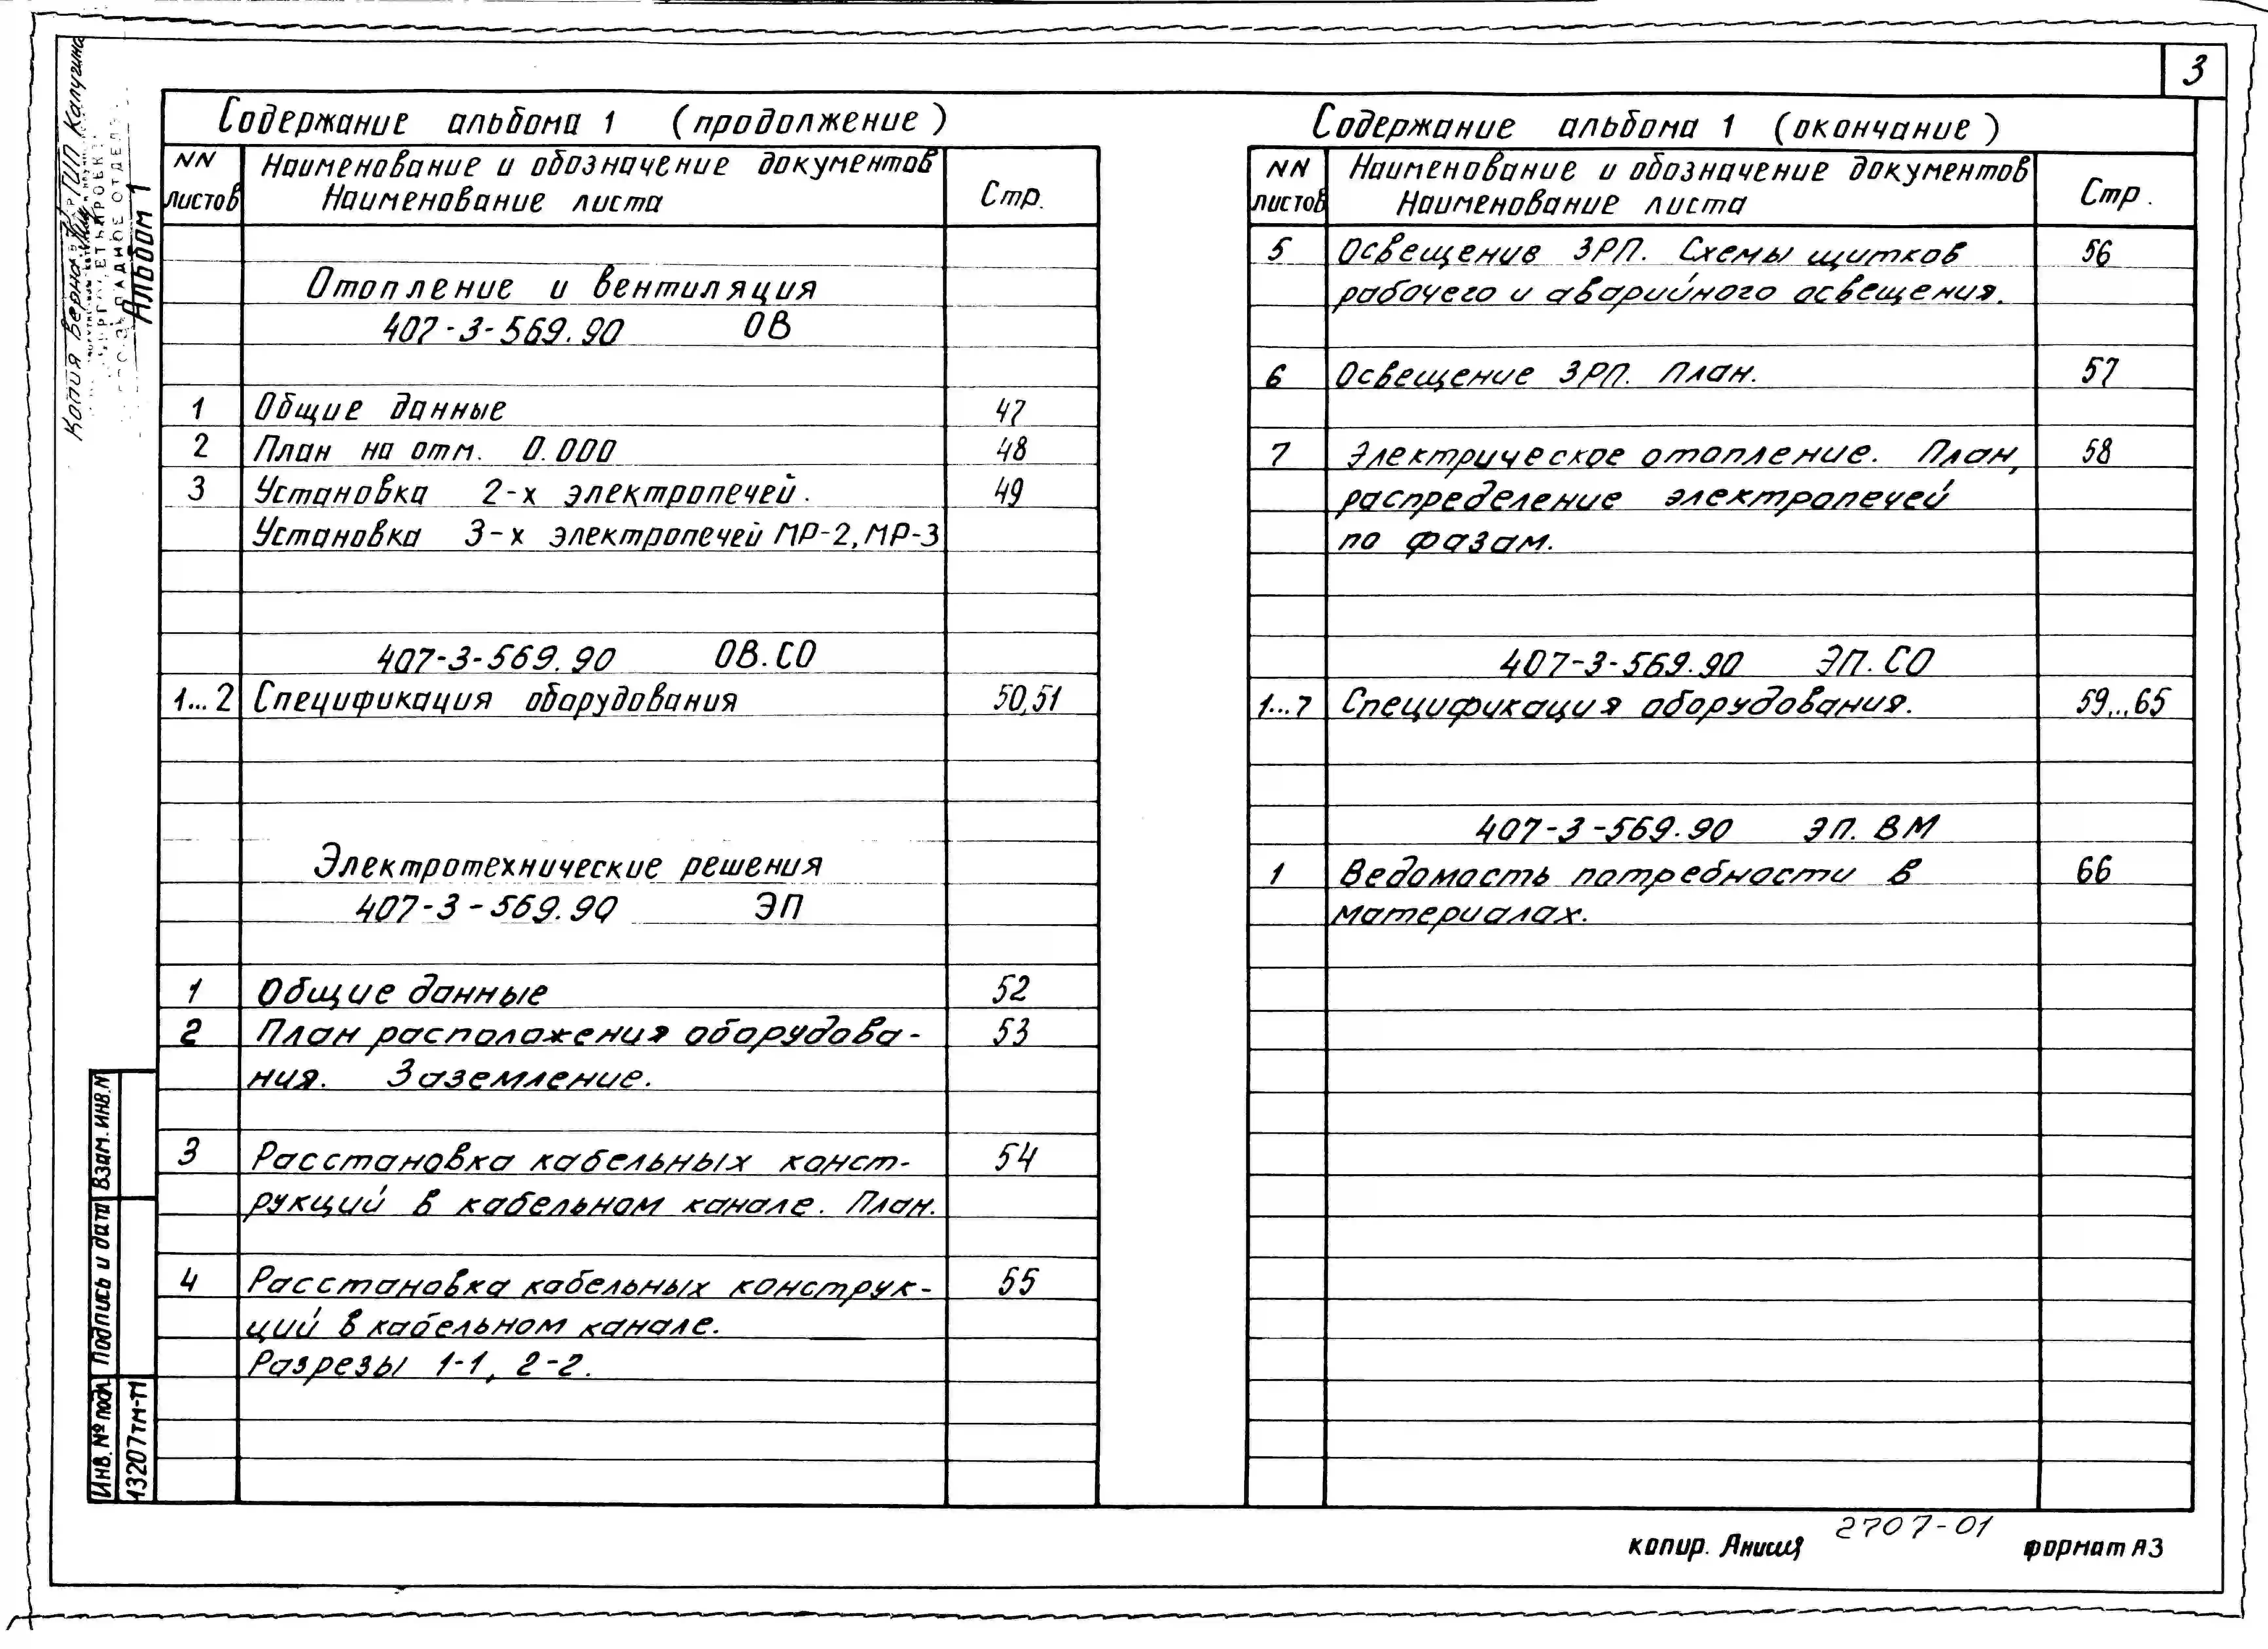 3
Содержание альбома 1 (продолжение)
NN листов
Наименование и обозначение документов
Наименование листа
Стр.
Отопление и вентиляция
407-3-569.90 ОВ
1 Общие данные 47
2 План на отм. 0.000 48
3 Установка 2-х электропечей. 49
Установка 3-х электропечей МР-2, МР-3
407-3-569.90 ОВ.СО
1...2 Спецификация оборудования 50,51
Электротехнические решения
407-3-569.90 ЭП
1 Общие данные 52
2 План расположения оборудова- 53
ния. Заземление.
3 Расстановка кабельных конст- 54
рукций в кабельном канале. План.
4 Расстановка кабельных конструк- 55
ций в кабельном канале.
Разрезы 1-1, 2-2.
Содержание альбома 1 (окончание)
NN листов
Наименование и обозначение документов
Наименование листа
Стр.
5 Освещение ЗРП. Схемы щитков 56
рабочего и аварийного освещения.
6 Освещение ЗРП. План. 57
7 Электрическое отопление. План, 58
распределение электропечей
по фазам.
407-3-569.90 ЭП.СО
1...7 Спецификация оборудования. 59...65
407-3-569.90 ЭП.ВМ
1 Ведомость потребности в 66
материалах.
Копия верна ГИП Калугина
Альбом 1
Взам. инв. N
Подпись и дата
Инв. № подл.
13207тм-т1
копир. 2707-01 формат А3